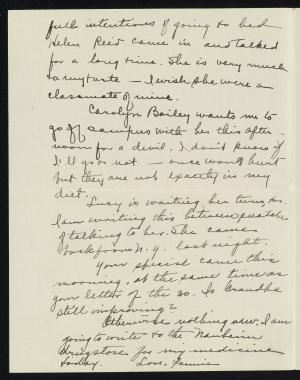 full intentions of going to bed
Helen Reid came in and talked
for a long time. She is very much
to my taste – I wish she were a
classmate of mine.
Carolyn Bailey wants me to
go off campus with her this after-
noon for a devil. I don't know if
I'll go or not – once won't hurt
but they are not exactly in my
diet.
Lucy is waiting her turn, so
I am writing this between snatches
of talking to her. She came
back from N.Y. last night.
Your special came this
morning, at the same time as
your letter of the 30. Is Grandpa
still improving?
Otherwise nothing new. I am
going to write to the
drugstore for my medicine
today. Love, Fannie